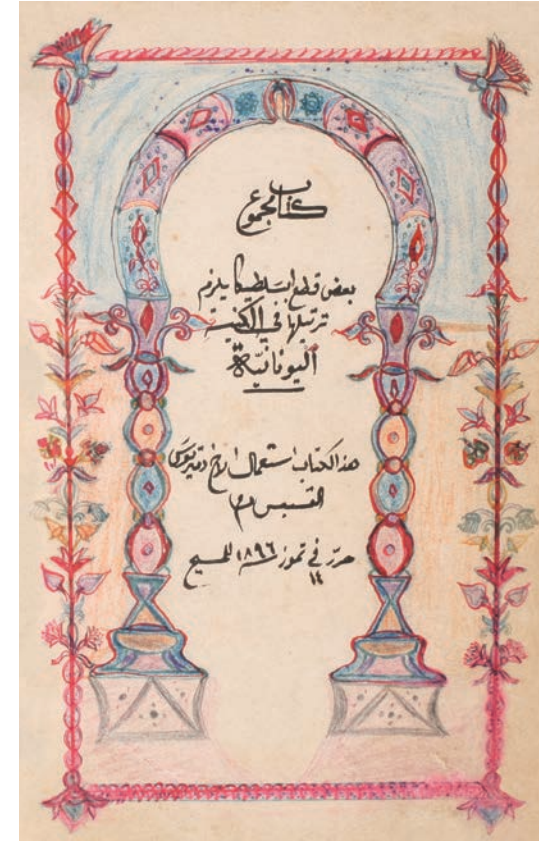 كتاب مجموع
بعض قطع بسلطيكا يلزم
ترتيلها في الكنيسة
اليونانيّة
هذا الكتاب استعمال الاخ ديمتريوس
القسيس
حرّر في ١٤ تموز سنة ١٨٩٦ للمسيح